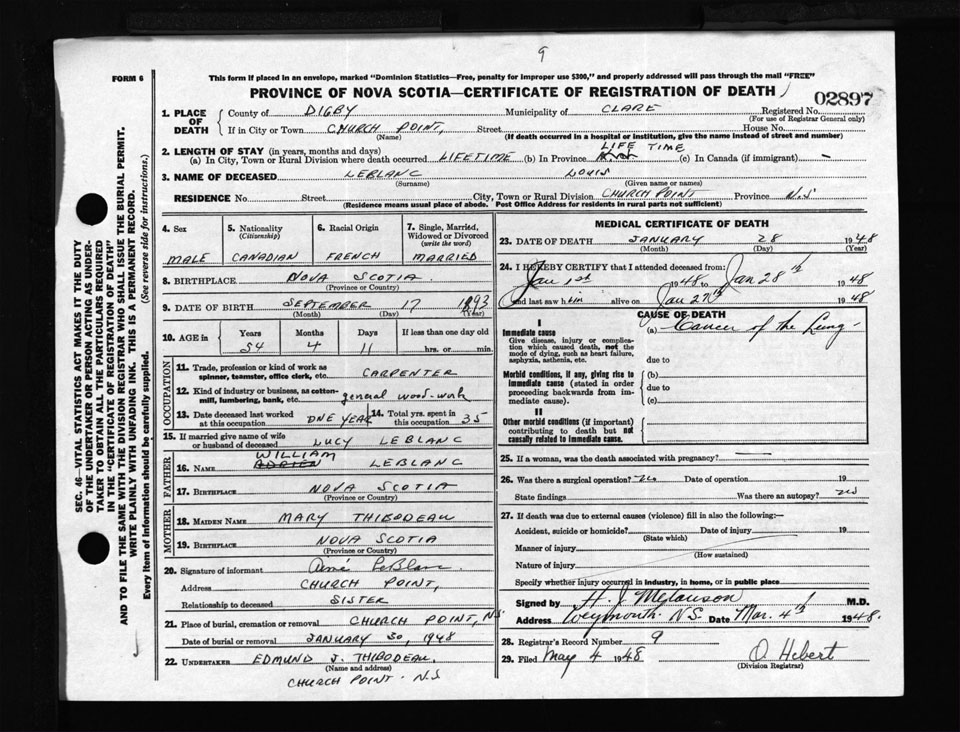 9
FORM 6
This form if placed in an envelope, marked "Dominion Statistics—Free, penalty for improper use $300," and properly addressed will pass through the mail "FREE"
PROVINCE OF NOVA SCOTIA—CERTIFICATE OF REGISTRATION OF DEATH
02897
1. PLACE OF DEATH
County of DIGBY Municipality of CLARE Registered No.
(For use of Registrar General only)
If in City or Town CHURCH POINT, Street House No.
(Name) (If death occurred in a hospital or institution, give the name instead of street and number)
2. LENGTH OF STAY (in years, months and days)
LIFE TIME
(a) In City, Town or Rural Division where death occurred LIFETIME (b) In Province (c) In Canada (if immigrant) —
3. NAME OF DECEASED LEBLANC LOUIS
(Surname) (Given name or names)
RESIDENCE No. Street City, Town or Rural Division CHURCH POINT Province N.S
(Residence means usual place of abode. Post Office Address for residents in rural parts not sufficient)
SEC. 46—VITAL STATISTICS ACT MAKES IT THE DUTY
OF THE UNDERTAKER OR PERSON ACTING AS UNDER-
TAKER TO OBTAIN ALL THE PARTICULARS REQUIRED
IN THE "CERTIFICATE OF REGISTRATION OF DEATH"
AND TO FILE THE SAME WITH THE DIVISION REGISTRAR WHO SHALL ISSUE THE BURIAL PERMIT.
WRITE PLAINLY WITH UNFADING INK. THIS IS A PERMANENT RECORD.
Every item of information should be carefully supplied. (See reverse side for instructions.)
4. Sex
MALE
5. Nationality
(Citizenship)
CANADIAN
6. Racial Origin
FRENCH
7. Single, Married,
Widowed or Divorced
(write the word)
MARRIED
8. BIRTHPLACE NOVA SCOTIA
(Province or Country)
9. DATE OF BIRTH SEPTEMBER 17 1893
(Month) (Day) (Year)
10. AGE in Years Months Days If less than one day old
54 4 11 hrs. or min.
OCCUPATION
11. Trade, profession or kind of work as
spinner, teamster, office clerk, etc. CARPENTER
12. Kind of industry or business, as cotton-
mill, lumbering, bank, etc. general wood-work
13. Date deceased last worked
at this occupation ONE YEAR
14. Total yrs. spent in
this occupation 35
15. If married give name of wife
or husband of deceased LUCY LEBLANC
FATHER
WILLIAM
16. NAME ADRIEN LEBLANC
17. BIRTHPLACE NOVA SCOTIA
(Province or Country)
MOTHER
18. MAIDEN NAME MARY THIBODEAU
19. BIRTHPLACE NOVA SCOTIA
(Province or Country)
20. Signature of informant LeBlanc
Address CHURCH POINT,
Relationship to deceased SISTER
21. Place of burial, cremation or removal CHURCH POINT, NS
Date of burial or removal JANUARY 30, 1948
22. UNDERTAKER EDMUND J. THIBODEAU
(Name and address)
CHURCH POINT - N.S
MEDICAL CERTIFICATE OF DEATH
23. DATE OF DEATH JANUARY 28 1948
(Month) (Day) (Year)
24. I HEREBY CERTIFY that I attended deceased from:
Jan 1st 1948 to Jan 28th 1948
and last saw him alive on Jan 27th 1948
CAUSE OF DEATH
I
Immediate cause
Give disease, injury or complication
which caused death, not the
mode of dying, such as heart failure,
asphyxia, asthenia, etc.
(a) Cancer of the Lung
due to
Morbid conditions, if any, giving rise to
immediate cause (stated in order
proceeding backwards from im-
mediate cause).
(b)
due to
(c)
II
Other morbid conditions (if important)
contributing to death but not
causally related to immediate cause.
25. If a woman, was the death associated with pregnancy? —
26. Was there a surgical operation? no Date of operation 19
State findings Was there an autopsy? no
27. If death was due to external causes (violence) fill in also the following:—
Accident, suicide or homicide? Date of injury 19
(State which)
Manner of injury
(How sustained)
Nature of injury
Specify whether injury occurred in industry, in home, or in public place
Signed by H. J. Melanson M.D.
Address Weymouth N.S. Date Mar. 4th 1948.
28. Registrar's Record Number 9
29. Filed May 4 1948 O. Hebert
(Division Registrar)